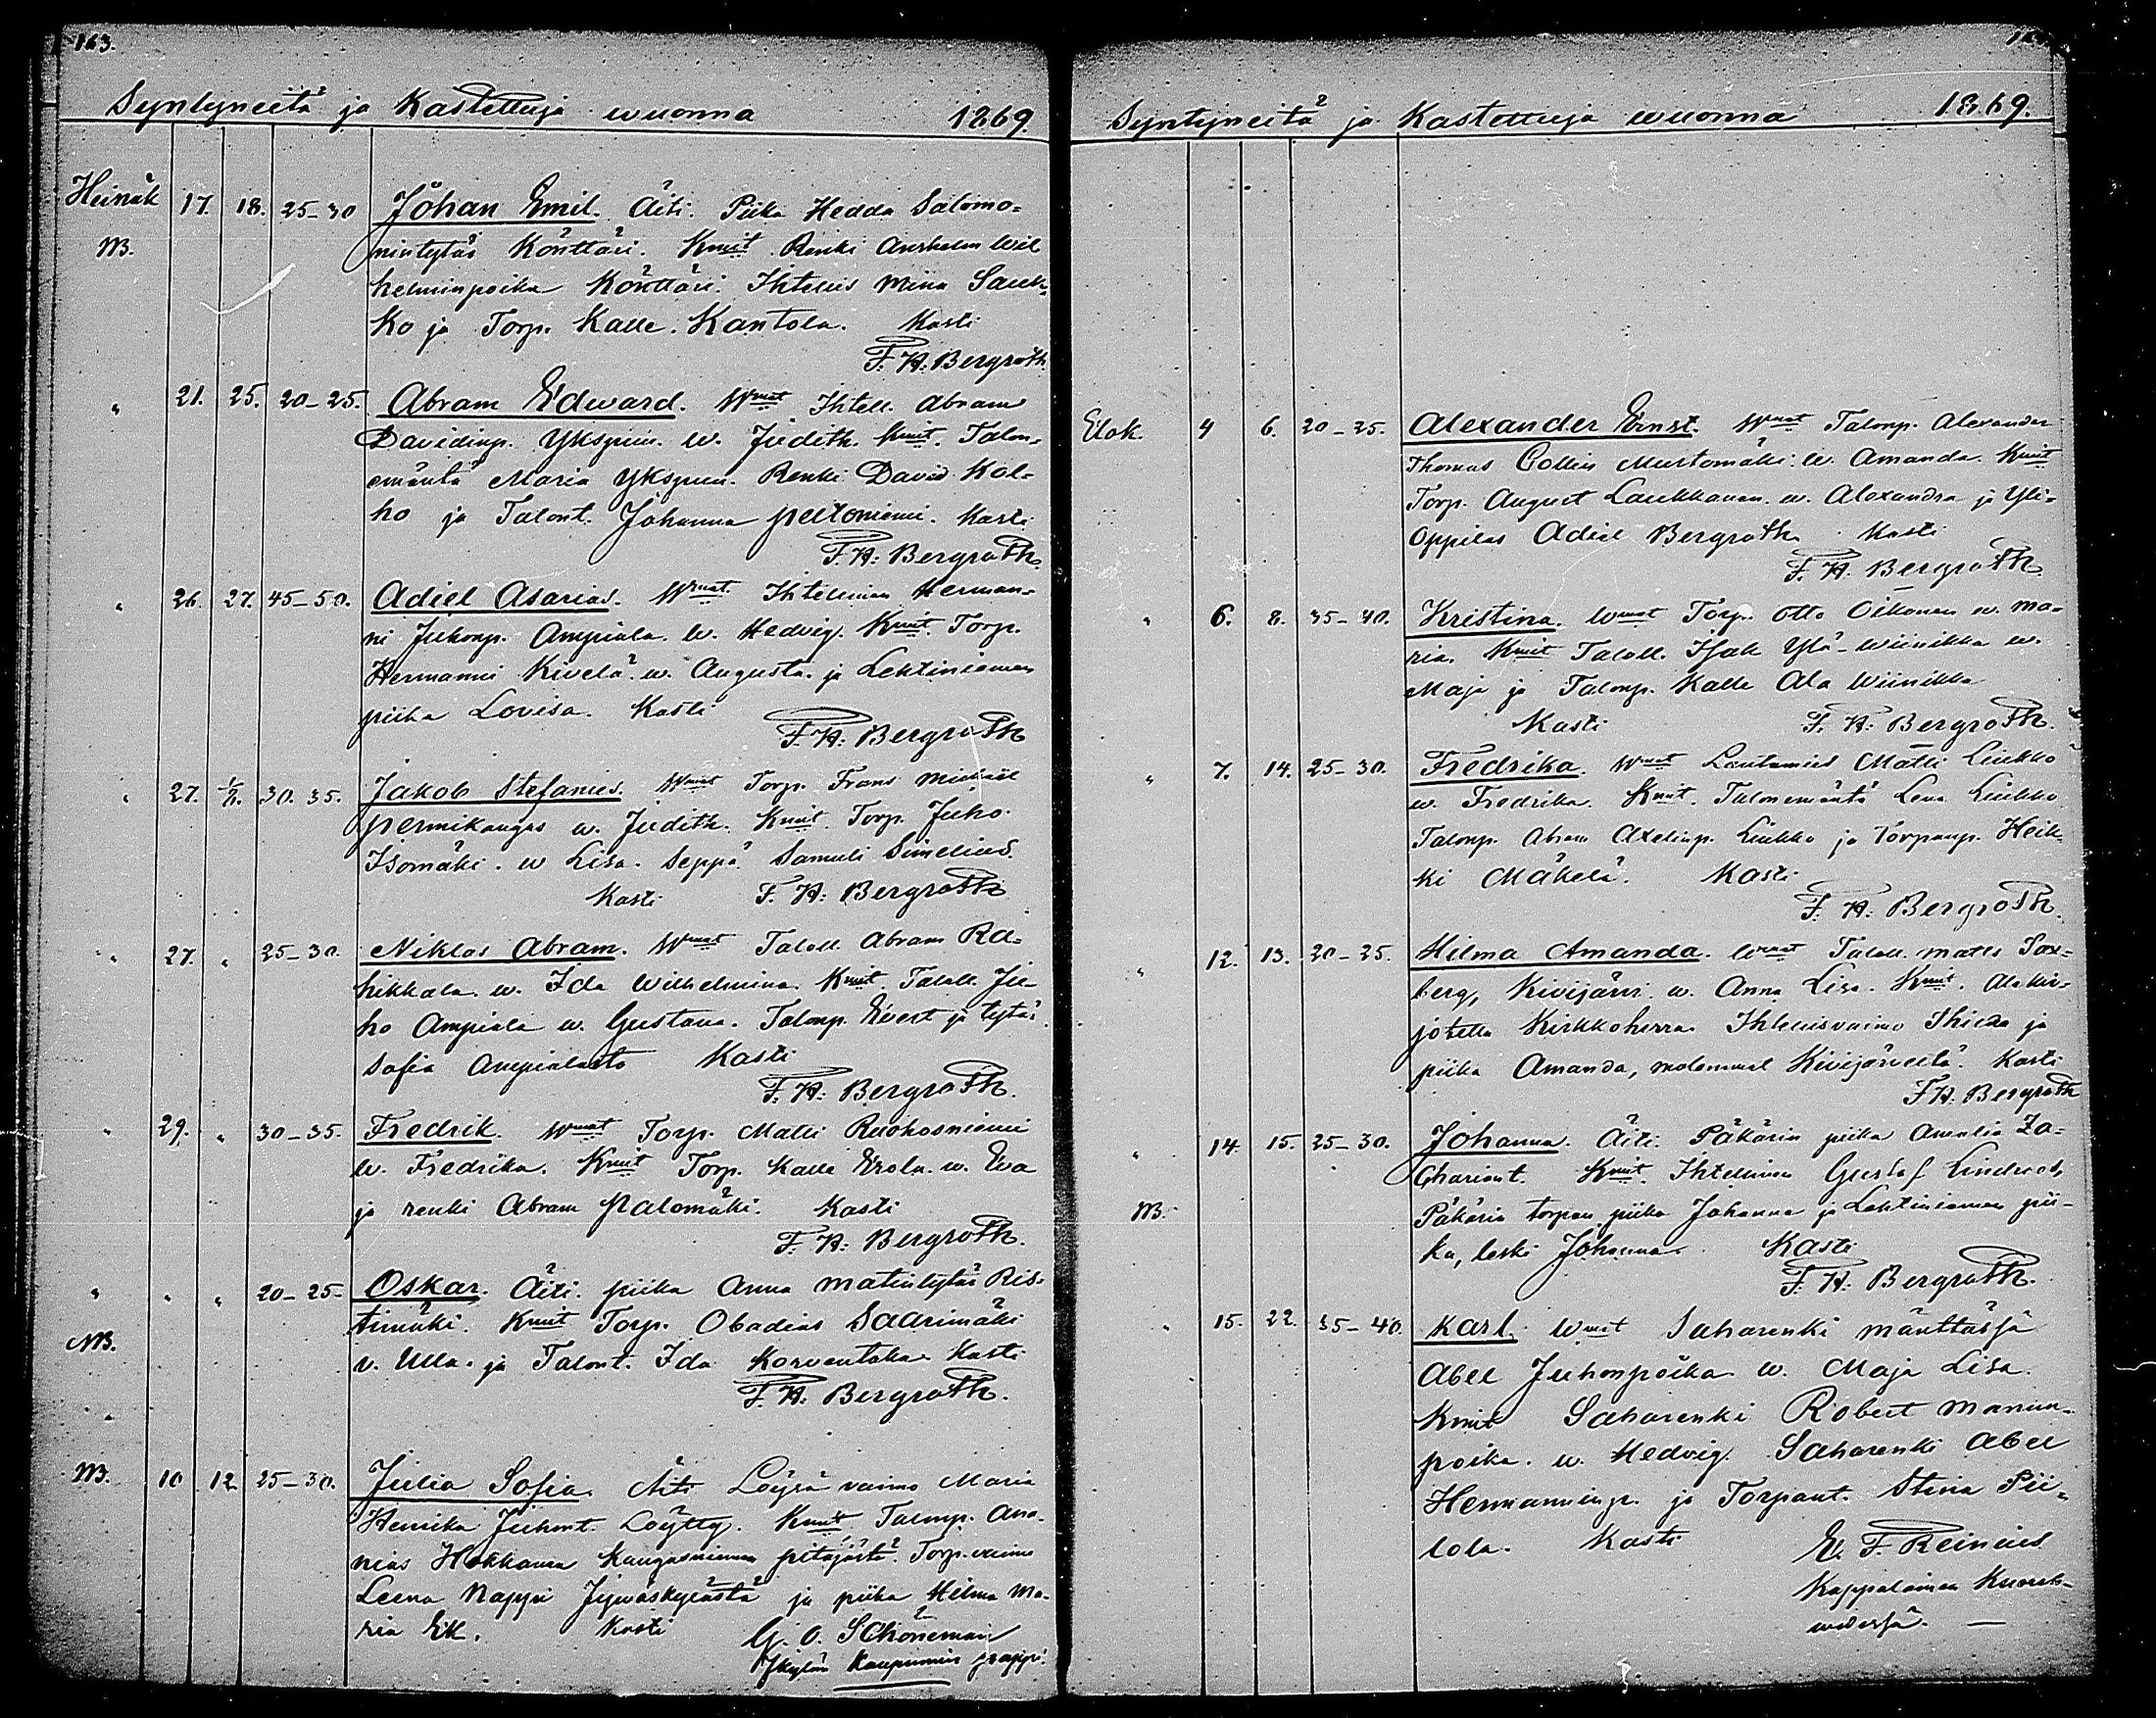 163.
Syntyneitä ja Kastettuja wuonna 1869.
Heinäk 17. 18. 25-30 Johan Emil. Äiti. Piika Hedda Salomo=
M. nintytär Könttäri. Kmit Renki Anshelm Wil
helminpoika Könttäri. Ihtellis Miina Sauk=
ko ja Torp. Kalle Kantola. Kasti
F. H: Bergroth.
" 21. 25. 20-25. Abram Edward. Wmat Ihtell. Abram
Davidinp. Ykspuu. w. Judith. Kmit. Talon=
emäntä Maria Ykspuu. Renki David Kal=
ho ja Talont. Johanna Peltoniemi. Kasti
F. H: Bergroth.
" 26. 27. 45-50. Adiel Asarias. Wmat. Ihtellinen Herman=
ni Juhonp. Ampiala. w. Hedvig. Kmit. Torp.
Hermanni Kivelä. w. Augusta. ja Lehtiniemen
piika Lovisa. Kasti
F. H: Bergroth
" 27. 1/8. 30. 35. Jakob Stefanus. Wmat Torp. Frans Michael
Permikangas w. Judith. Kmit Torp. Juho
Isomäki. w Lisa. Seppä Samuli Simelius.
Kasti F. H: Bergroth
" 27. " 25-30. Niklas Abram. Wmat Taloll. Abram Ra=
hikkala. w. Ida Wilhelmina. Kmit Taloll. Ju=
ho Ampiala w. Gustava. Talonp. Evert ja tytär
Sofia Ampialasta Kasti
F. H: Bergroth.
" 29. " 30-35. Fredrik. Wmat Torp. Matti Ruohosniemi
w. Fredrika. Kmit Torp. Kalle Erola. w. Eva
ja renki Abram Palomäki. Kasti
F. H: Bergroth.
" " " 20-25- Oskar. Äiti. piika Anna Matintytär Ris=
timäki. Kmit Torp. Obadias Saarimäki
M. v. Ulla. ja Talont. Ida Korventaka Kasti
F. H: Bergroth.
M. 10 12 25-30. Julia Sofia. Äiti Löysä vaimo Maria
Henrika Juhont. Löytty. Kmit Talonp. Ana=
nias Hokkanen Kangasniemen pitäjästä. Torp. vaimo
Leena Nappu Jyväskylästä ja piika Hilma Ma=
ria Ek. Kasti G. O. Schöneman
Jkylän kaupunnin pappi.
Syntyneitä ja Kastettuja wuonna 1869.
Elok. 4 6. 20-25. Alexander Ernst. Wmat Talonp. Alexander
Thomas Collin Mustomäki. w. Amanda. Kmit
Torp. August Laukkanen. w. Alexandra ja Yli=
oppilas Adiel Bergroth. Kasti
F. H. Bergroth.
" 6. 8. 35-40. Kristina. Wmat Torp. Otto Oikonen w. Ma=
ria. Kmit Taloll. Isak Ylä-Wiinikka w.
Maja ja Talonp. Kalle Ala Wiinikka
Kasti F. H: Bergroth.
" 7. 14. 25-30. Fredrika. Wmat Lautamies Matti Liukko
w. Fredrika. Kmit. Talonemäntä Lena Liukko
Talonp. Abram Axelinp. Liukko ja Torpanp. Heik=
ki Mäkelä. Kasti
F. H: Bergroth.
" 12. 13. 20-25. Hilma Amanda. Wmat Taloll. Matts Sax=
berg, Kivijärvi. w. Anna Lisa. Kmit.
Kirkkoherra. Ihtellisvaimo ja
piika Amanda, molemmat Kivijärveltä. Kasti
F. H: Bergroth
" 14. 15. 25-30. Johanna. Äiti Päkärin piika Amalia Za=
chariant. Kmit. Ihtellinen Gustaf Lindroos,
M. Päkärin torpan piika Johanna ja Lehtiniemen pii=
ka, leski Johanna. Kasti
F. H: Bergroth.
" 15. 22. 35-40. Karl. Wmat Saharenki Mänttässä
Abel Juhonpoika w. Maja Lisa.
Kmit Saharenki Robert Manun=
poika. w. Hedvig. Saharenki Abel
Hermanninp. ja Torpant. Stina Pii=
lola. Kasti E. F. Reinius
Kappalainen Kuore=
wedessä. —